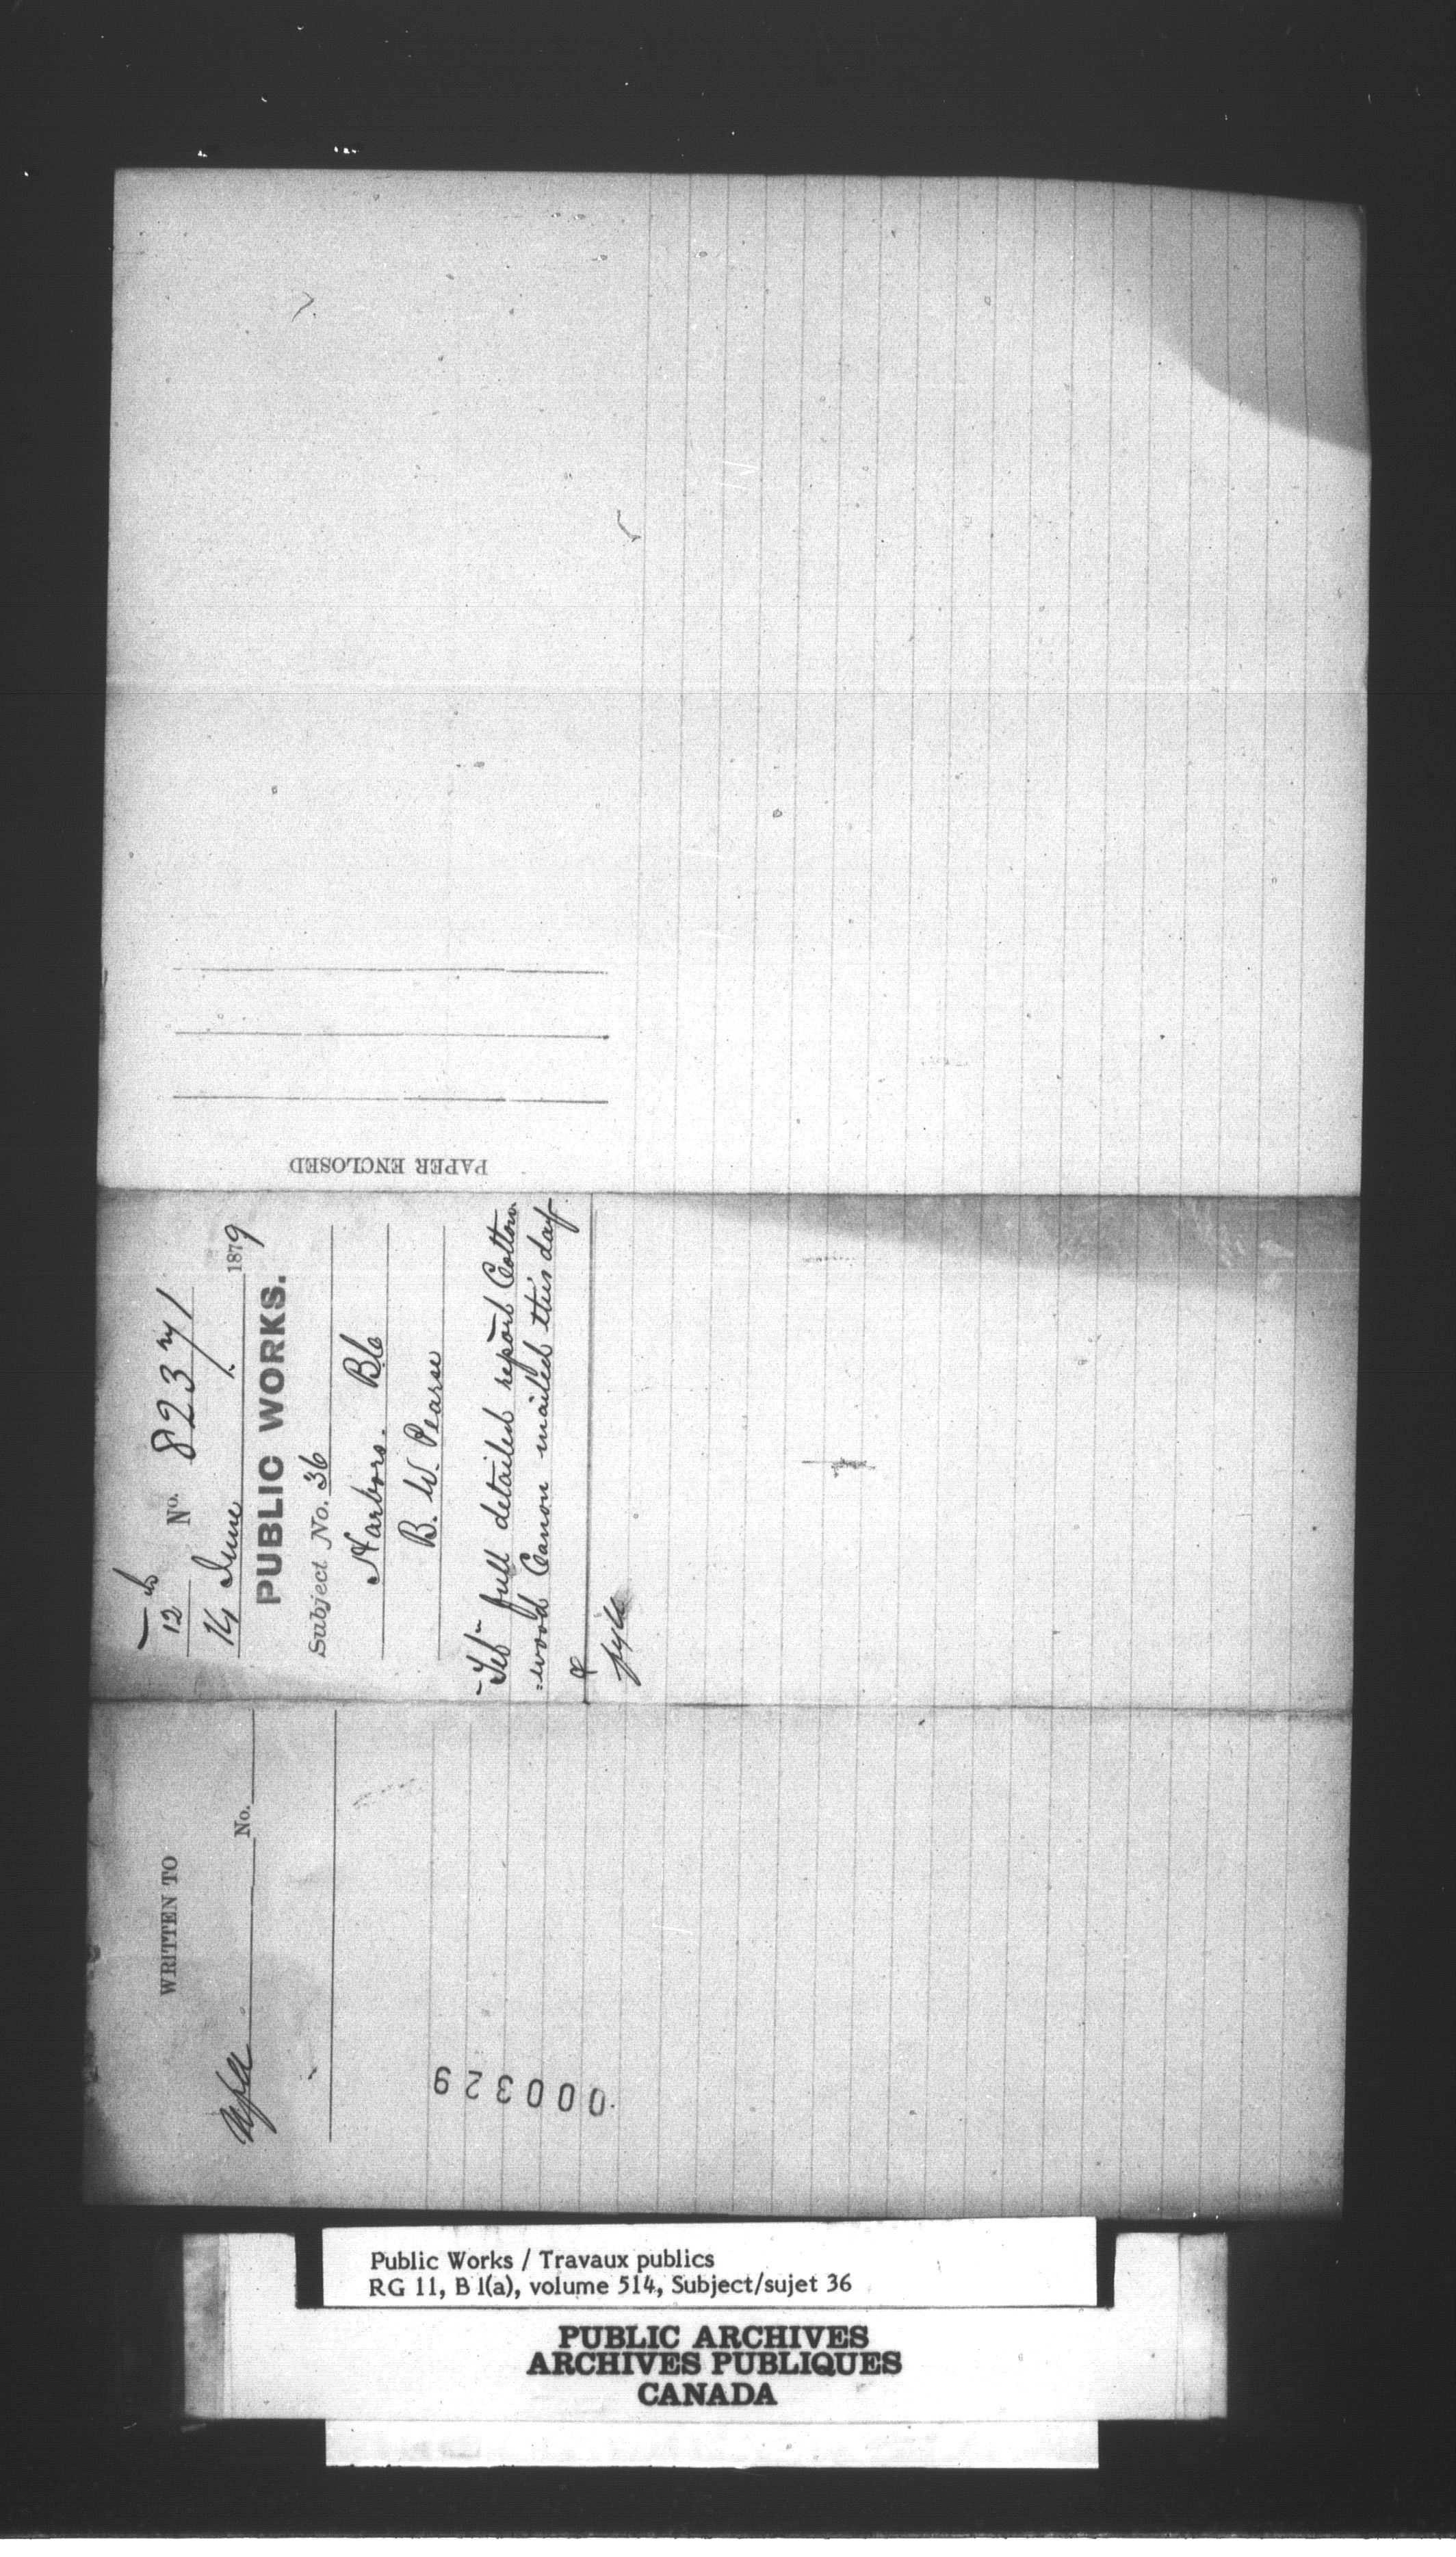 PAPER ENCLOSED
12 No. 82371
14 June 1879
PUBLIC WORKS.
Subject No. 36
Harbors. BC
B. W. Pearse
full detailed report Cotton
=wood Canon mailed this day
fyle
WRITTEN TO
No.
000329
Public Works / Travaux publics
RG 11, B 1(a), volume 514, Subject/sujet 36
PUBLIC ARCHIVES
ARCHIVES PUBLIQUES
CANADA